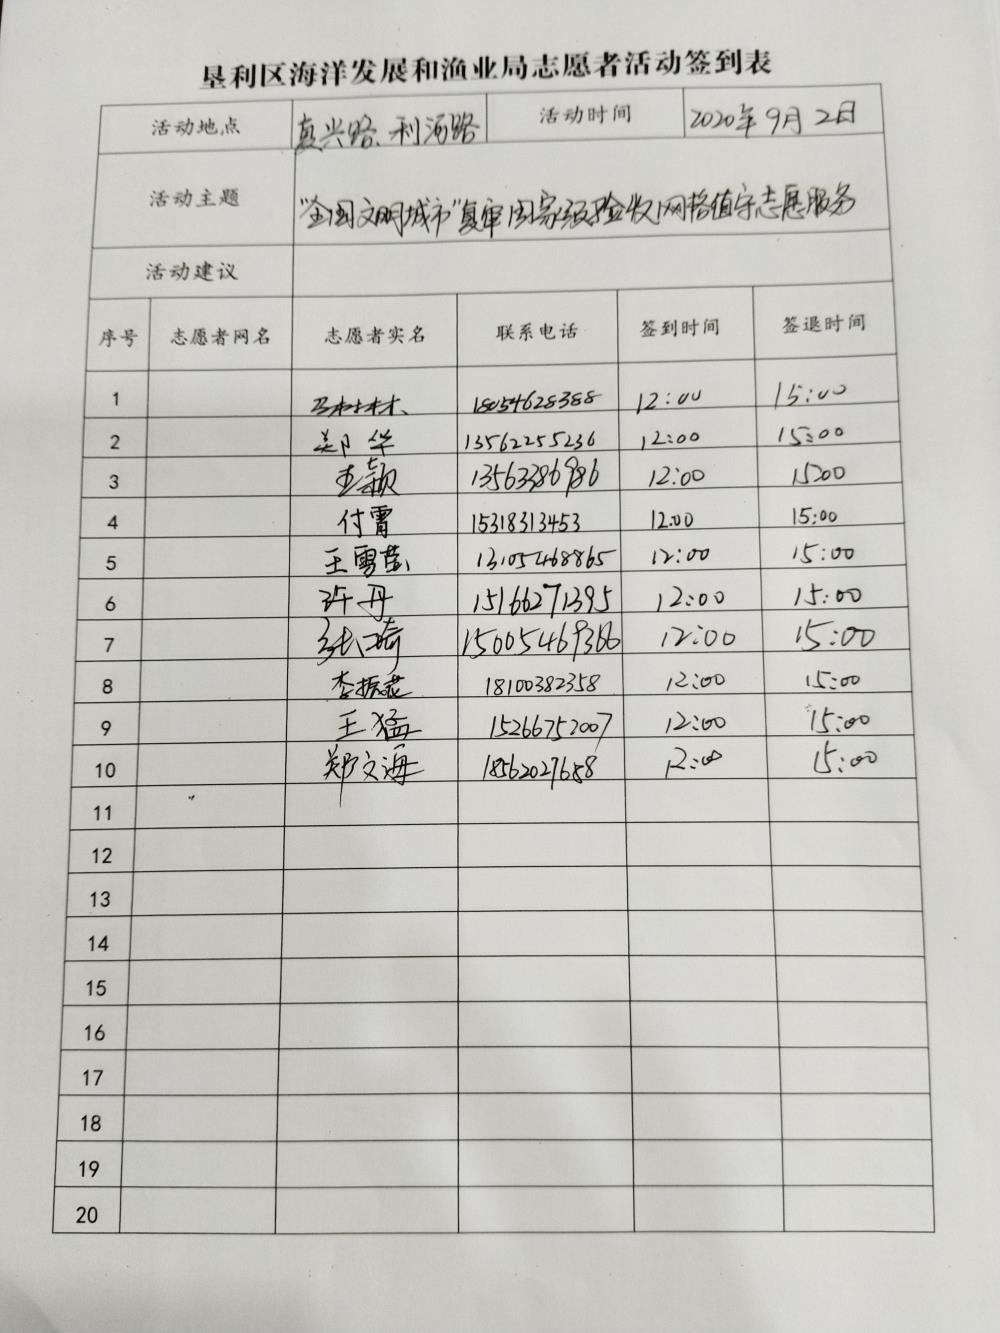 垦利区海洋发展和渔业局志愿者活动签到表
活动地点 复兴路、利河路 活动时间 2020年9月2日
活动主题 "全国文明城市"复审国家级验收网格值守志愿服务
活动建议
序号 志愿者网名 志愿者实名 联系电话 签到时间 签退时间
1 18054628388 12:00 15:00
2 郑华 13562255236 12:00 15:00
3 王颖 13563386986 12:00 1500
4 付霄 15318313453 12:00 15:00
5 王雪莹 13105468865 12:00 15:00
6 许丹 15166271395 12:00 15:00
7 张琦 15005469366 12:00 15:00
8 李振 18100382358 12:00 15:00
9 王猛 15266752007 12:00 15:00
10 郑文海 18562027658 12:00 15:00
11
12
13
14
15
16
17
18
19
20